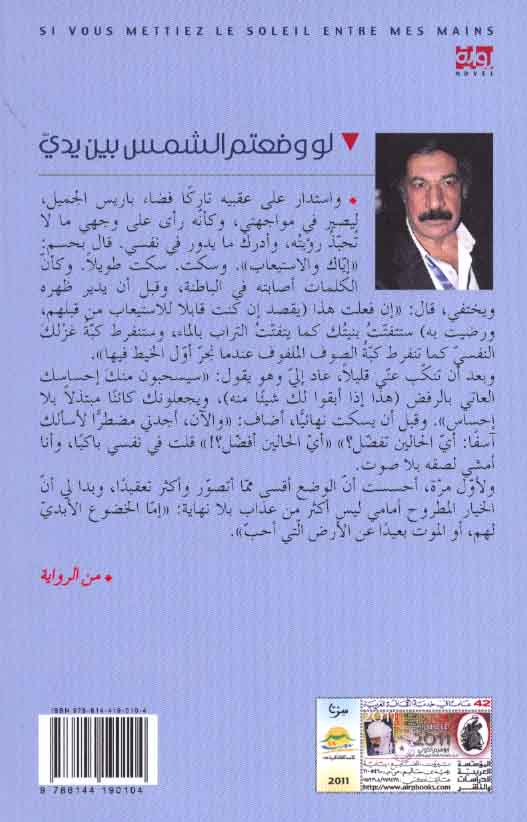 SI VOUS METTIEZ LE SOLEIL ENTRE MES MAINS
رواية
NOVEL
لو وضعتم الشمس بين يديّ
واستدار على عقبيه تاركًا فضاء باريس الجميل،
ليصير في مواجهتي، وكأنّه رأى على وجهي ما لا
تحبّذ رؤيته، وأدرك ما يدور في نفسي. قال بحسم:
«إيّاك والاستيعاب». وسكت. سكت طويلاً. وكأنّ
الكلمات أصابته في الباطنة، وقبل أن يدير ظهره
ويختفي، قال: «إن فعلت هذا (يقصد إن كنت قابلا للاستيعاب من قبلهم،
ورضيت به) ستتفتّتُ بنيتُك كما يتفتّتُ التراب بالماء، وستنفرط كبّةُ غزلكَ
النفسيّ كما تنفرط كبّةُ الصوف الملفوف عندما نجرّ أوّل الخيط فيها».
وبعد أن تنكّب عنّي قليلاً، عاد إليّ وهو يقول: «سيسحبون منكَ إحساسك
العاتي بالرفض (هذا إذا أبقوا لك شيئا منه)، ويجعلونك كائنًا مبتذلاً بلا
إحساس». وقبل أن يسكت نهائيًا، أضاف: «والآن، أجدني مضطرًا لأسألك
آسفًا: أيّ الحالين تفضّل؟» «أيّ الحالين أفضّل؟!» قلت في نفسي باكيًا، وأنا
أمشي لصقه بلا صوت.
ولأوّل مرّة، أحسست أنّ الوضع أقسى ممّا أتصوّر وأكثر تعقيدًا، وبدا لي أنّ
الخيار المطروح أمامي ليس أكثر من عذاب بلا نهاية: «إمّا الخضوع الأبديّ
لهم، أو الموت بعيدًا عن الأرض الّتي أحبّ».
من الرواية
ISBN 978-614-419-010-4
9 786144 190104
2011
42 عاما في خدمة الثقافة العربية
2011
المؤسسة
العربية
للدراسات
والنشر
http://www.airpbooks.com